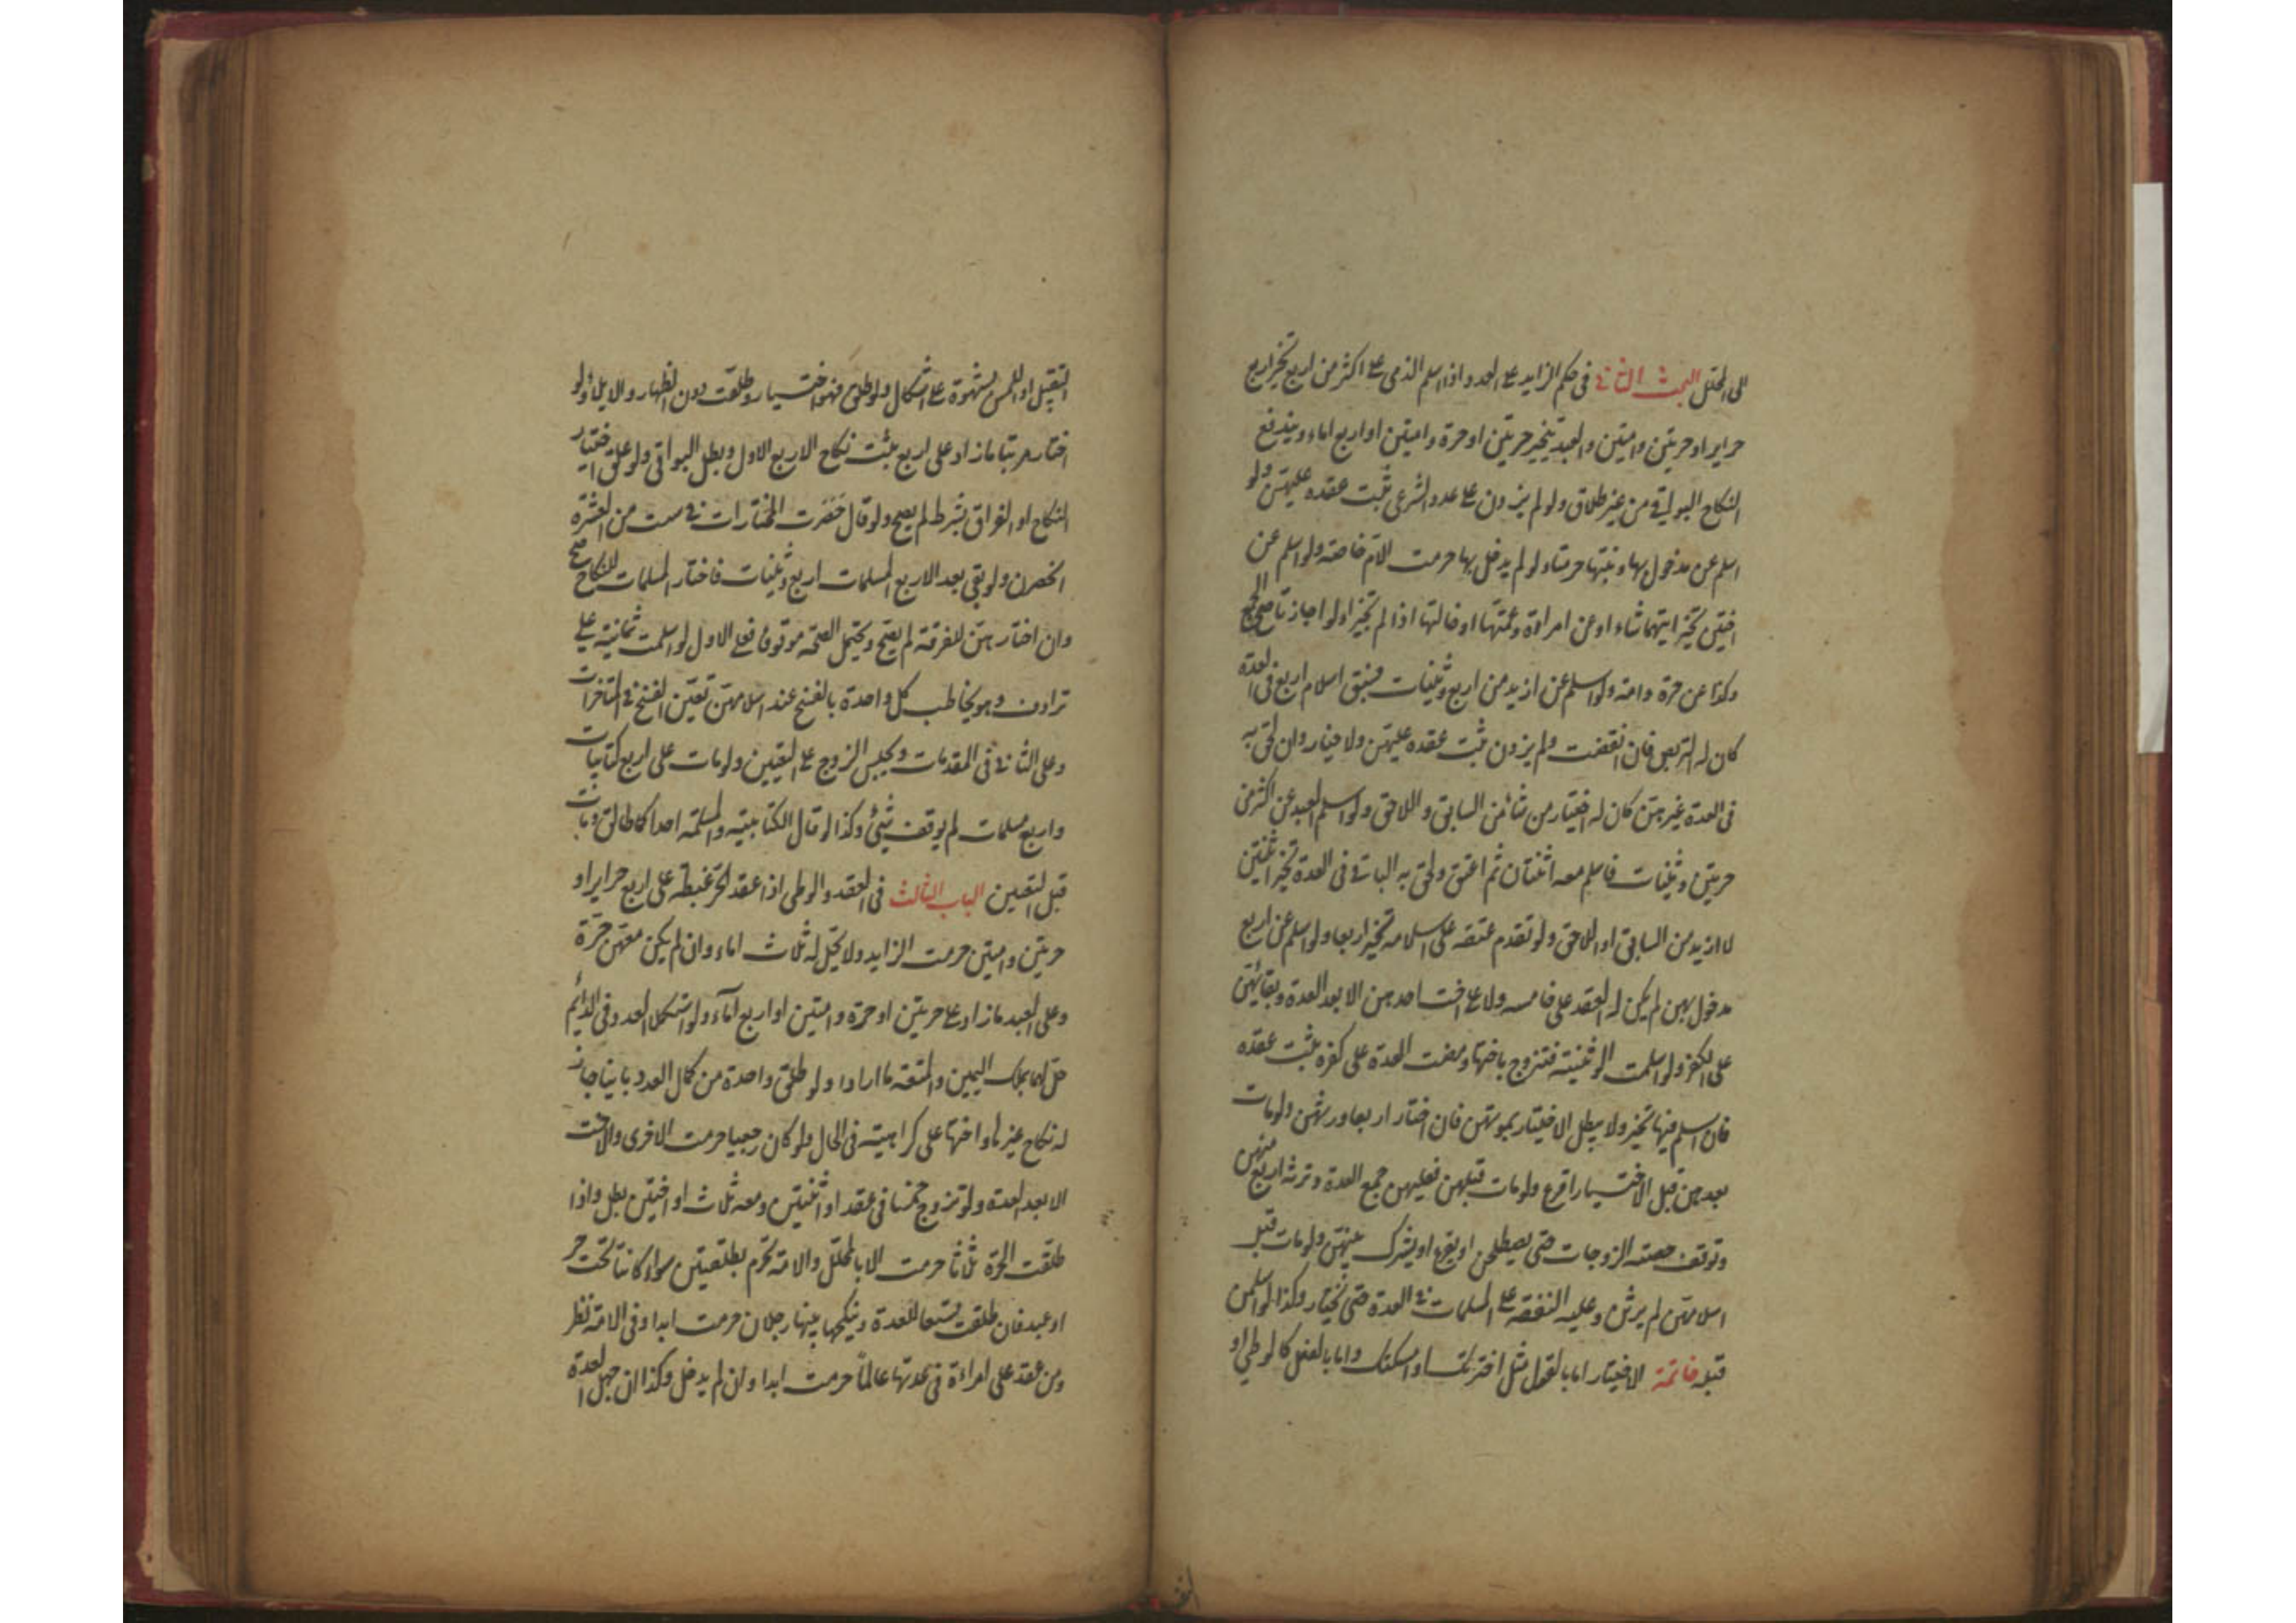 الى المحلل البحث الثانى فى حكم الزايد على العدد اذا اسلم الذمى على اكثر من اربع تخير اربع
حراير او حرتين وامتين والعبد يتخير حرتين او حرة وامتين او اربع اماء ويندفع
النكاح البواقى من غير طلاق ولو لم يزدن على عدد الشرعى ثبت عقده عليهن ولو
اسلم عن مدخول بها وبنتها حرمتا ولو لم يدخل بها حرمت الام خاصة ولو اسلم عن
اختين تخير ايتهما شاء او عن امراة وعمتها او خالتها اذا لم تجيزا ولو اجازتا صح الجمع
وكذا عن حرة وامة ولو اسلم عن ازيد من اربع وثنيات فسبق اسلام اربع فى العدة
كان له التربص فان انقضت ولم يزدن ثبت عقده عليهن ولا خيار وان لحق به
فى العدة غيرهن كان له اختيار من شاء من السابق واللاحق ولو اسلم العبد عن اكثر من
حرتين وثنيات فاسلم معه اثنتان ثم اعتق ولحق به الباقى فى العدة تخير اثنتين
لا ازيد من السابق او اللاحق ولو تقدم عتقه على اسلامه تخير اربعا ولو اسلم عن اربع
مدخول بهن لم يكن له العقد على خامسة ولا على اخت احدهن الا بعد العدة وبقائهن
على الكفر ولو اسلمت الوثنية فتزوج باختها ومضت العدة على كفره ثبت عقده
فان اسلم فيها تخير ولا يبطل الاختيار بموتهن فان اختار اربعا ورثهن ولو مات
بعدهن قبل الاختيار اقرع ولو مات قبلهن فعليهن جمع العدة وترثه اربع منهن
وتوقف حصة الزوجات حتى يصطلحن او يقرع او يشرك بينهن ولو مات قبل
اسلامهن لم يرثن وعليه النفقة على المسلمات فى العدة حتى تختار وكذا لو اسلمن
قبله خاتمة الاختيار اما بالقول مثل اخترتك او امسكتك واما بالفعل كالوطى او
التقبيل او اللمس بشهوة على اشكال ولو وطئ فهو اختيار وطلقت دون الظهار والايلاء ولو
اختار مرتبا ما زاد على اربع ثبت نكاح الاربع الاول وبطل البواقى ولو علق اختيار
النكاح او الفراق بشرط لم يصح ولو قال حصرت المختارات فى ست من العشرة
انحصرن ولو بقى بعد الاربع المسلمات اربع وثنيات فاختار المسلمات للنكاح صح
وان اختارهن للفرقة لم يصح ويحتمل الصحة موقوفا فعلى الاول لو اسلمت ثمانية على
ترادف وهو يخاطب كل واحدة بالفسخ عند اسلامهن تعين الفسخ فى المتاخرات
وعلى الثانى فى المقدمات ويحبس الزوج على التعيين ولو مات على اربع كتابيات
واربع مسلمات لم يوقف شئ وكذا لو قال الكتابية والمسلمة احداكما طالق ومات
قبل التعيين الباب الثالث فى العقد والوطى اذا عقد الحر غبطة على اربع حراير او
حرتين وامتين حرمت الزايد ولا يحل له ثلاث اماء وان لم يكن معهن حرة
وعلى العبد ما زاد على حرتين او حرة وامتين او اربع اماء ولو استكملا العدد فى الدايم
حل لهما بملك اليمين والمتعة ما ارادا ولو طلق واحدة من كمال العدد باينا جاز
له نكاح غيرها واختها على كراهية فى الحال ولو كان رجعيا حرمت الاخرى والاخت
الا بعد العدة ولو تزوج خمسا فى عقد او اثنتين ومعه ثلاث او اختين بطل واذا
طلقت الحرة ثلاثا حرمت الا بالمحلل والامة تحرم بطلقتين سواء كانتا تحت حر
او عبد فان طلقت تسعا للعدة وينكحها بينها رجلان حرمت ابدا وفى الامة نظر
ومن عقد على امراءة فى عدتها عالما حرمت ابدا وان لم يدخل وكذا ان جهل العدة